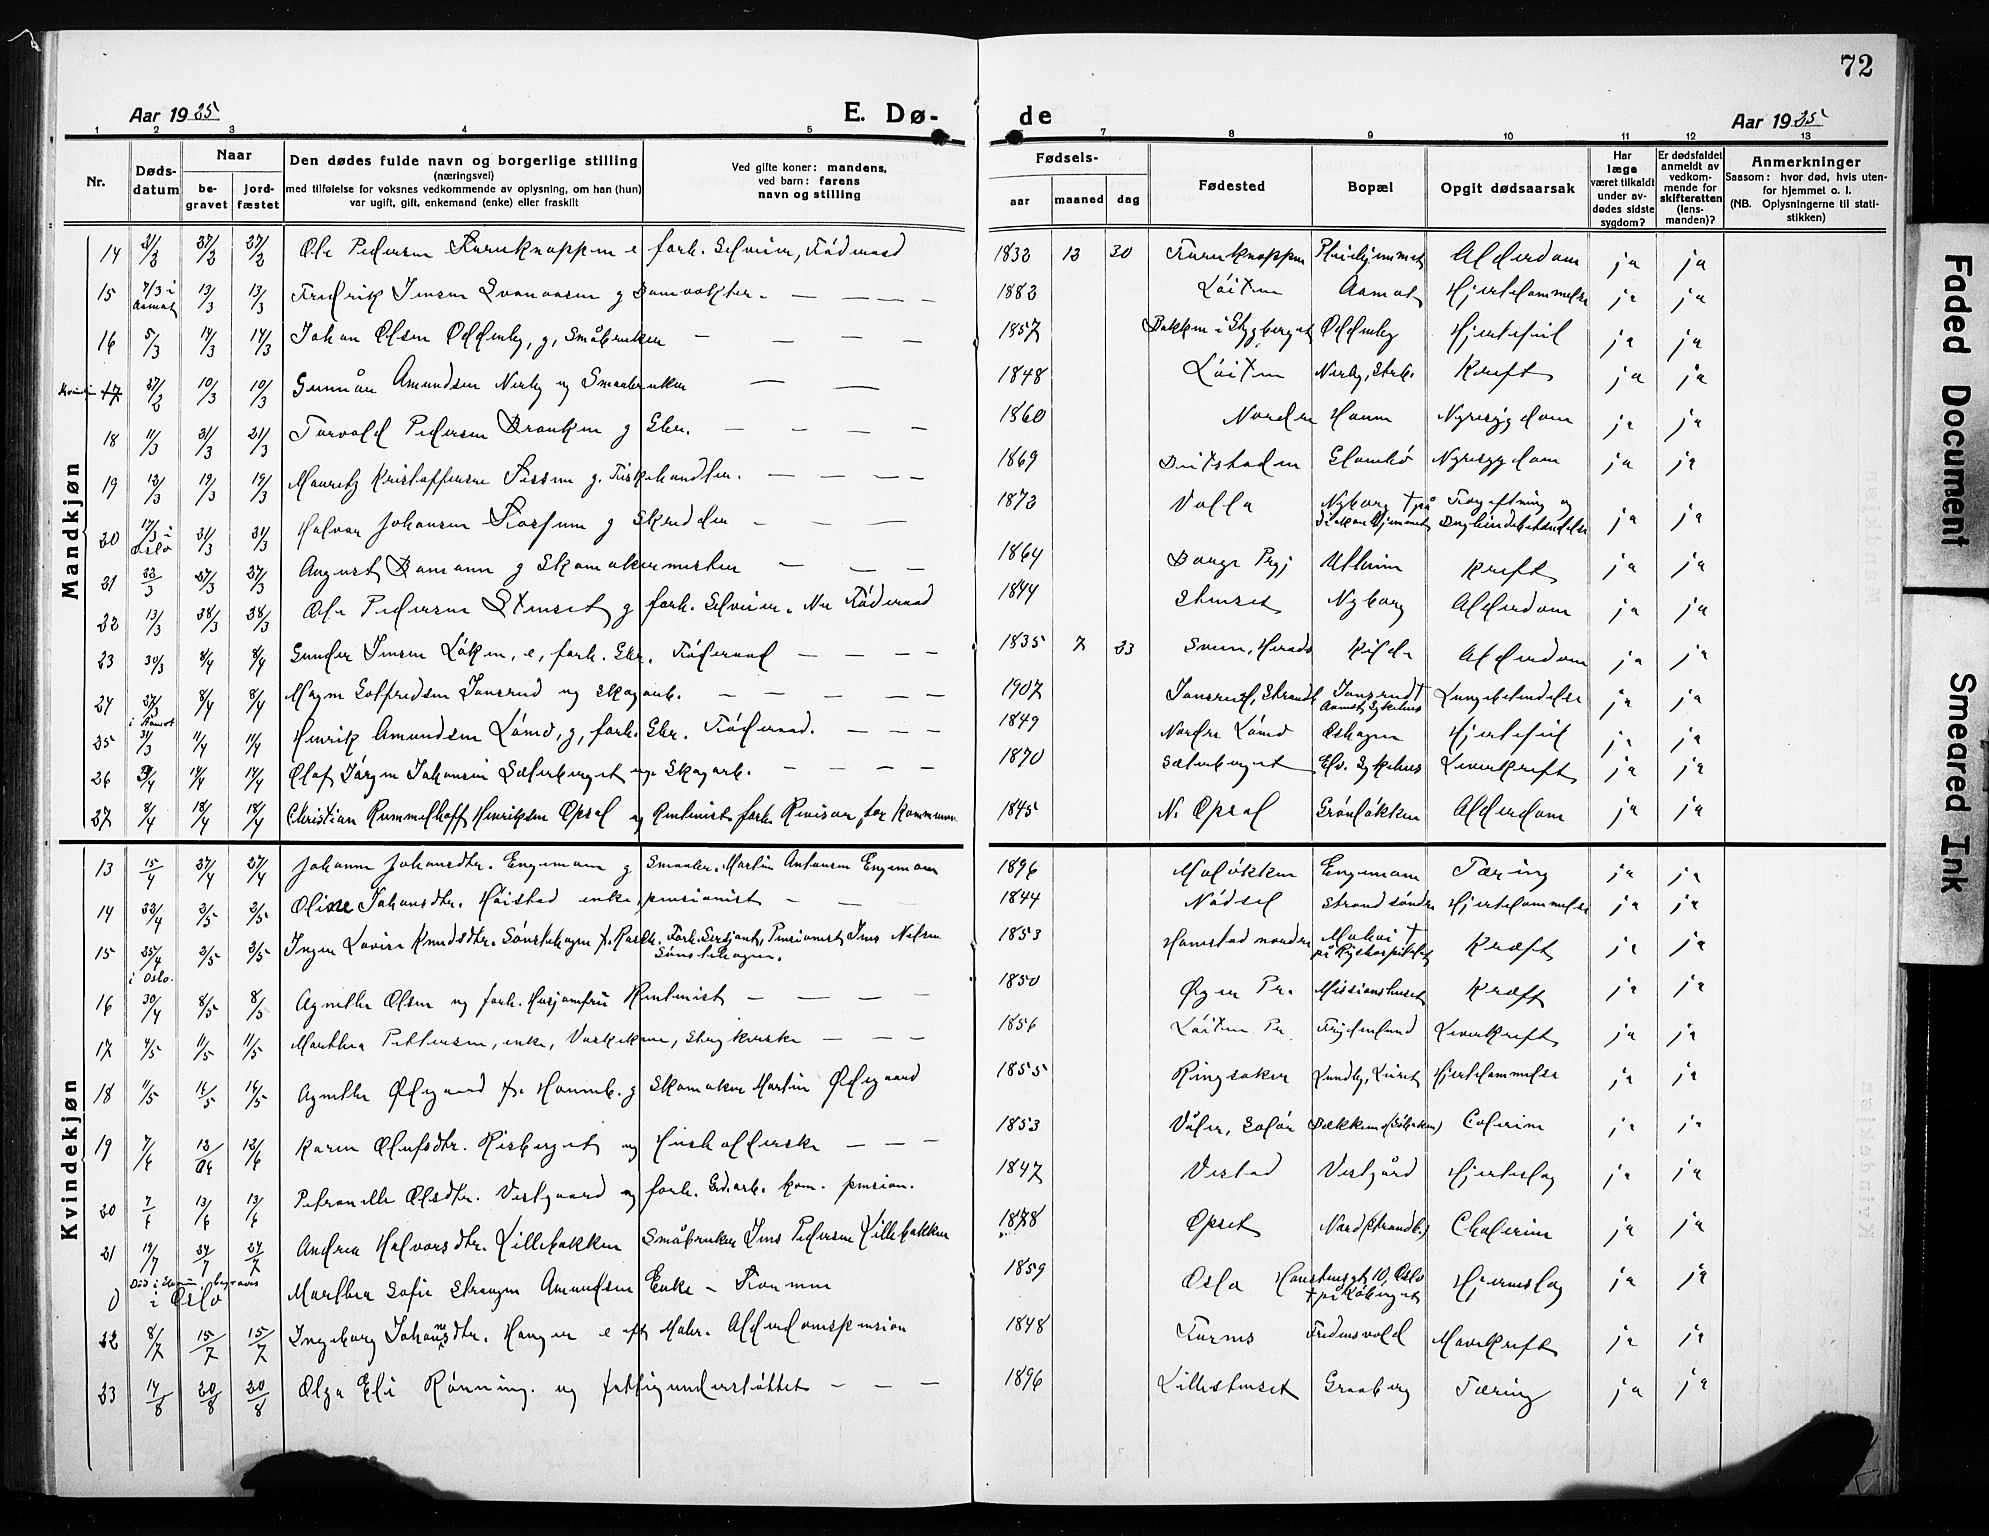 72
Aar 1925
E. Dø-
de
Aar 1925
1 2 3 4 5 6 7 8 9 10 11 12 13
Nr.
Døds-
datum
Naar
be-
gravet
jord-
fæstet
Den dødes fulde navn og borgerlige stilling
(næringsvei)
med tilføielse for voksnes vedkommende av oplysning, om han (hun)
var ugift, gift, enkemand (enke) eller fraskilt
Ved gifte koner: mandens,
ved barn: farens
navn og stilling
Fødsels-
aar maaned dag
Fødested
Bopæl
Opgit dødsaarsak
Har
læge
været tilkaldt
under av-
dødes sidste
sygdom?
Er dødsfaldet
anmeldt av
vedkom-
mende for
skifteretten
(lens-
manden)?
Anmerkninger
Saasom: hvor død, hvis uten-
for hjemmet o. l.
(NB. Oplysningerne til stati-
stikken)
Mandkjøn
14 27/2 27/2 Ole Pedersen Furuknappen e forh. Selveier, Føderaad 1832 12 30 Furuknappen Pleiehjemmet Alderdom ja ja
15 7/3 i Aamot 13/3 13/3 Fredrik Jensen Svanaasen g Banvokter. — — — — 1882 Løiten Aamot Hjertelammelse ja ja
16 5/3 14/3 14/3 Johan Olsen Oddenby, g, Småbruker — — — — 1857 Bakken i Stygberget Oddenby Hjertefeil ja ja
17 27/2 10/3 10/3 Amundsen Nerby ug Smaabruker — — — 1848 Løiten Nerby, Strb. Kreft ja ja
18 11/3 21/3 21/3 Torvald Pedersen g Gbr. — — — — 1860 Nordre Nyresygdom ja ja
19 12/3 19/3 19/3 Mauritz Kristoffersen g. Fiskehandler. — — — — 1869 Glombo Nyresygdom ja ja
20 17/3 i Oslo 21/3 21/3 Halvor Johansen g Skredder — — — 1872 Volla Nyborg † på Diakonhjemmet og ja ja
21 22/3 27/3 27/3 August Bomann g Skomakermester — — — 1864 Borge Prgj Utheim Kreft ja ja
22 13/3 28/3 28/3 Ole Pedersen Stenset g forh. Selveier. Nu Føderaad 1844 Stenset Nyborg Alderdom ja ja
23 30/3 8/4 8/4 Gunder Jensen Løken, e, forh. Gbr. Føderaad — — — — 1835 7 23 Kilde Alderdom ja ja
24 27/3 i Aamot 8/4 8/4 Magne Gotfredsen Jonsrud ug Skogarb. — — — — — 1907 Jonsrud, Strandb. Jonsrud † Aamot Sykehus Lungebetendelse ja ja
25 31/3 11/4 11/4 Henrik Amundsen Lømo, g, forh. Gbr. Føderaad. — — — 1849 Nordre Lømo Oshagen Hjertefeil ja ja
26 14/4 14/4 Olaf Jørgen Johansen Sæterberget ug. Skogarb. — — — — 1870 Sæterberget Elv. Sykehus Leverkreft ja ja
27 8/4 18/4 18/4 Christian Rummelhoff Henriksen Opsal ug Rentenist forh. Revisor for Kommunen 1845 N. Opsal Grønløkken Alderdom ja ja
Kvindekjøn
13 15/4 27/4 27/4 Johanne Johansdtr. Engemoen g Smaabr. Martin Antonsen Engemoen 1896 Moløkken Engemoen Tæring ja ja
14 22/4 2/5 2/5 Oline Johansdtr. Høistad enke, pensionist — — 1844 Nødsel Strand søndre Hjertelammelse ja ja
15 25/4 i Oslo. 2/5 2/5 Inger Lovise Knudsdtr. Sønstehagen f. Forh. Sersjant, Pensionist Jens Nilsen Sønstehagen. 1853 Hamstad nordre † på Rigshospitalet Kræft ja ja
16 30/4 8/5 8/5 Agnethe Olsen ug forh. Husjomfru Rentenist — — — — 1850 Øyer Pr. Missionshuset Kræft ja ja
17 4/5 11/5 11/5 Marthea Pettersen, enke, Vaskekone, Strykerske — — — 1856 Løiten Pr. Frydenlund Leverkreft ja ja
18 11/5 16/5 16/5 Agnethe Ødegaard f. g Skomaker Martin Ødegaard 1855 Ringsaker Lundby, Luret Hjertelammelse ja ja
19 7/6 12/6 12/6 Karen Olufsdtr. Risberget ug Husholderske — — — 1853 Våler, Solør Bækken Colerine ja ja
20 7/6 13/6 13/6 Petronelle Olsdtr. Vestgaard ug forh. Grd.arb. kom. pension. 1847 Vestad Vestgård Hjerteslag ja ja
21 19/7 27/7 27/7 Andrea Halvorsdtr. Lillebakken Småbruker Jens Pedersen Lillebakken 1878 Opset Nord (Strandb.) Cholerine ja ja
0 Død i Elverum, begravet i Oslo Marthea Sofie Amundsen Enke — 1859 Oslo 10, Oslo † på Købinget Hjerneslag ja ja
22 8/7 15/7 15/7 Ingeborg Johannesdtr. Hanger e eft Maler. Alderdomspension 1848 Furnes Fredensvold Mavekreft ja ja
23 14/8 20/8 20/8 Olga Eli Rønning. ug fattigunderstøttet — — — 1896 Lillestenset Graaberg Tæring ja ja
Faded Document
Smeared Ink